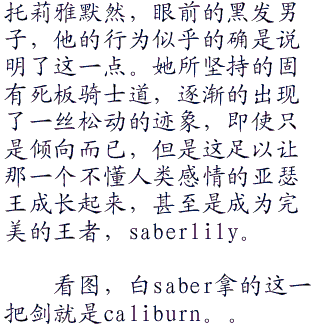 托莉雅默然，眼前的黑发男
子，他的行为似乎的确是说
明了这一点。她所坚持的固
有死板骑士道，逐渐的出现
了一丝松动的迹象，即使只
是倾向而已，但是这足以让
那一个不懂人类感情的亚瑟
王成长起来，甚至是成为完
美的王者，saberlily。
看图，白saber拿的这一
把剑就是caliburn。。